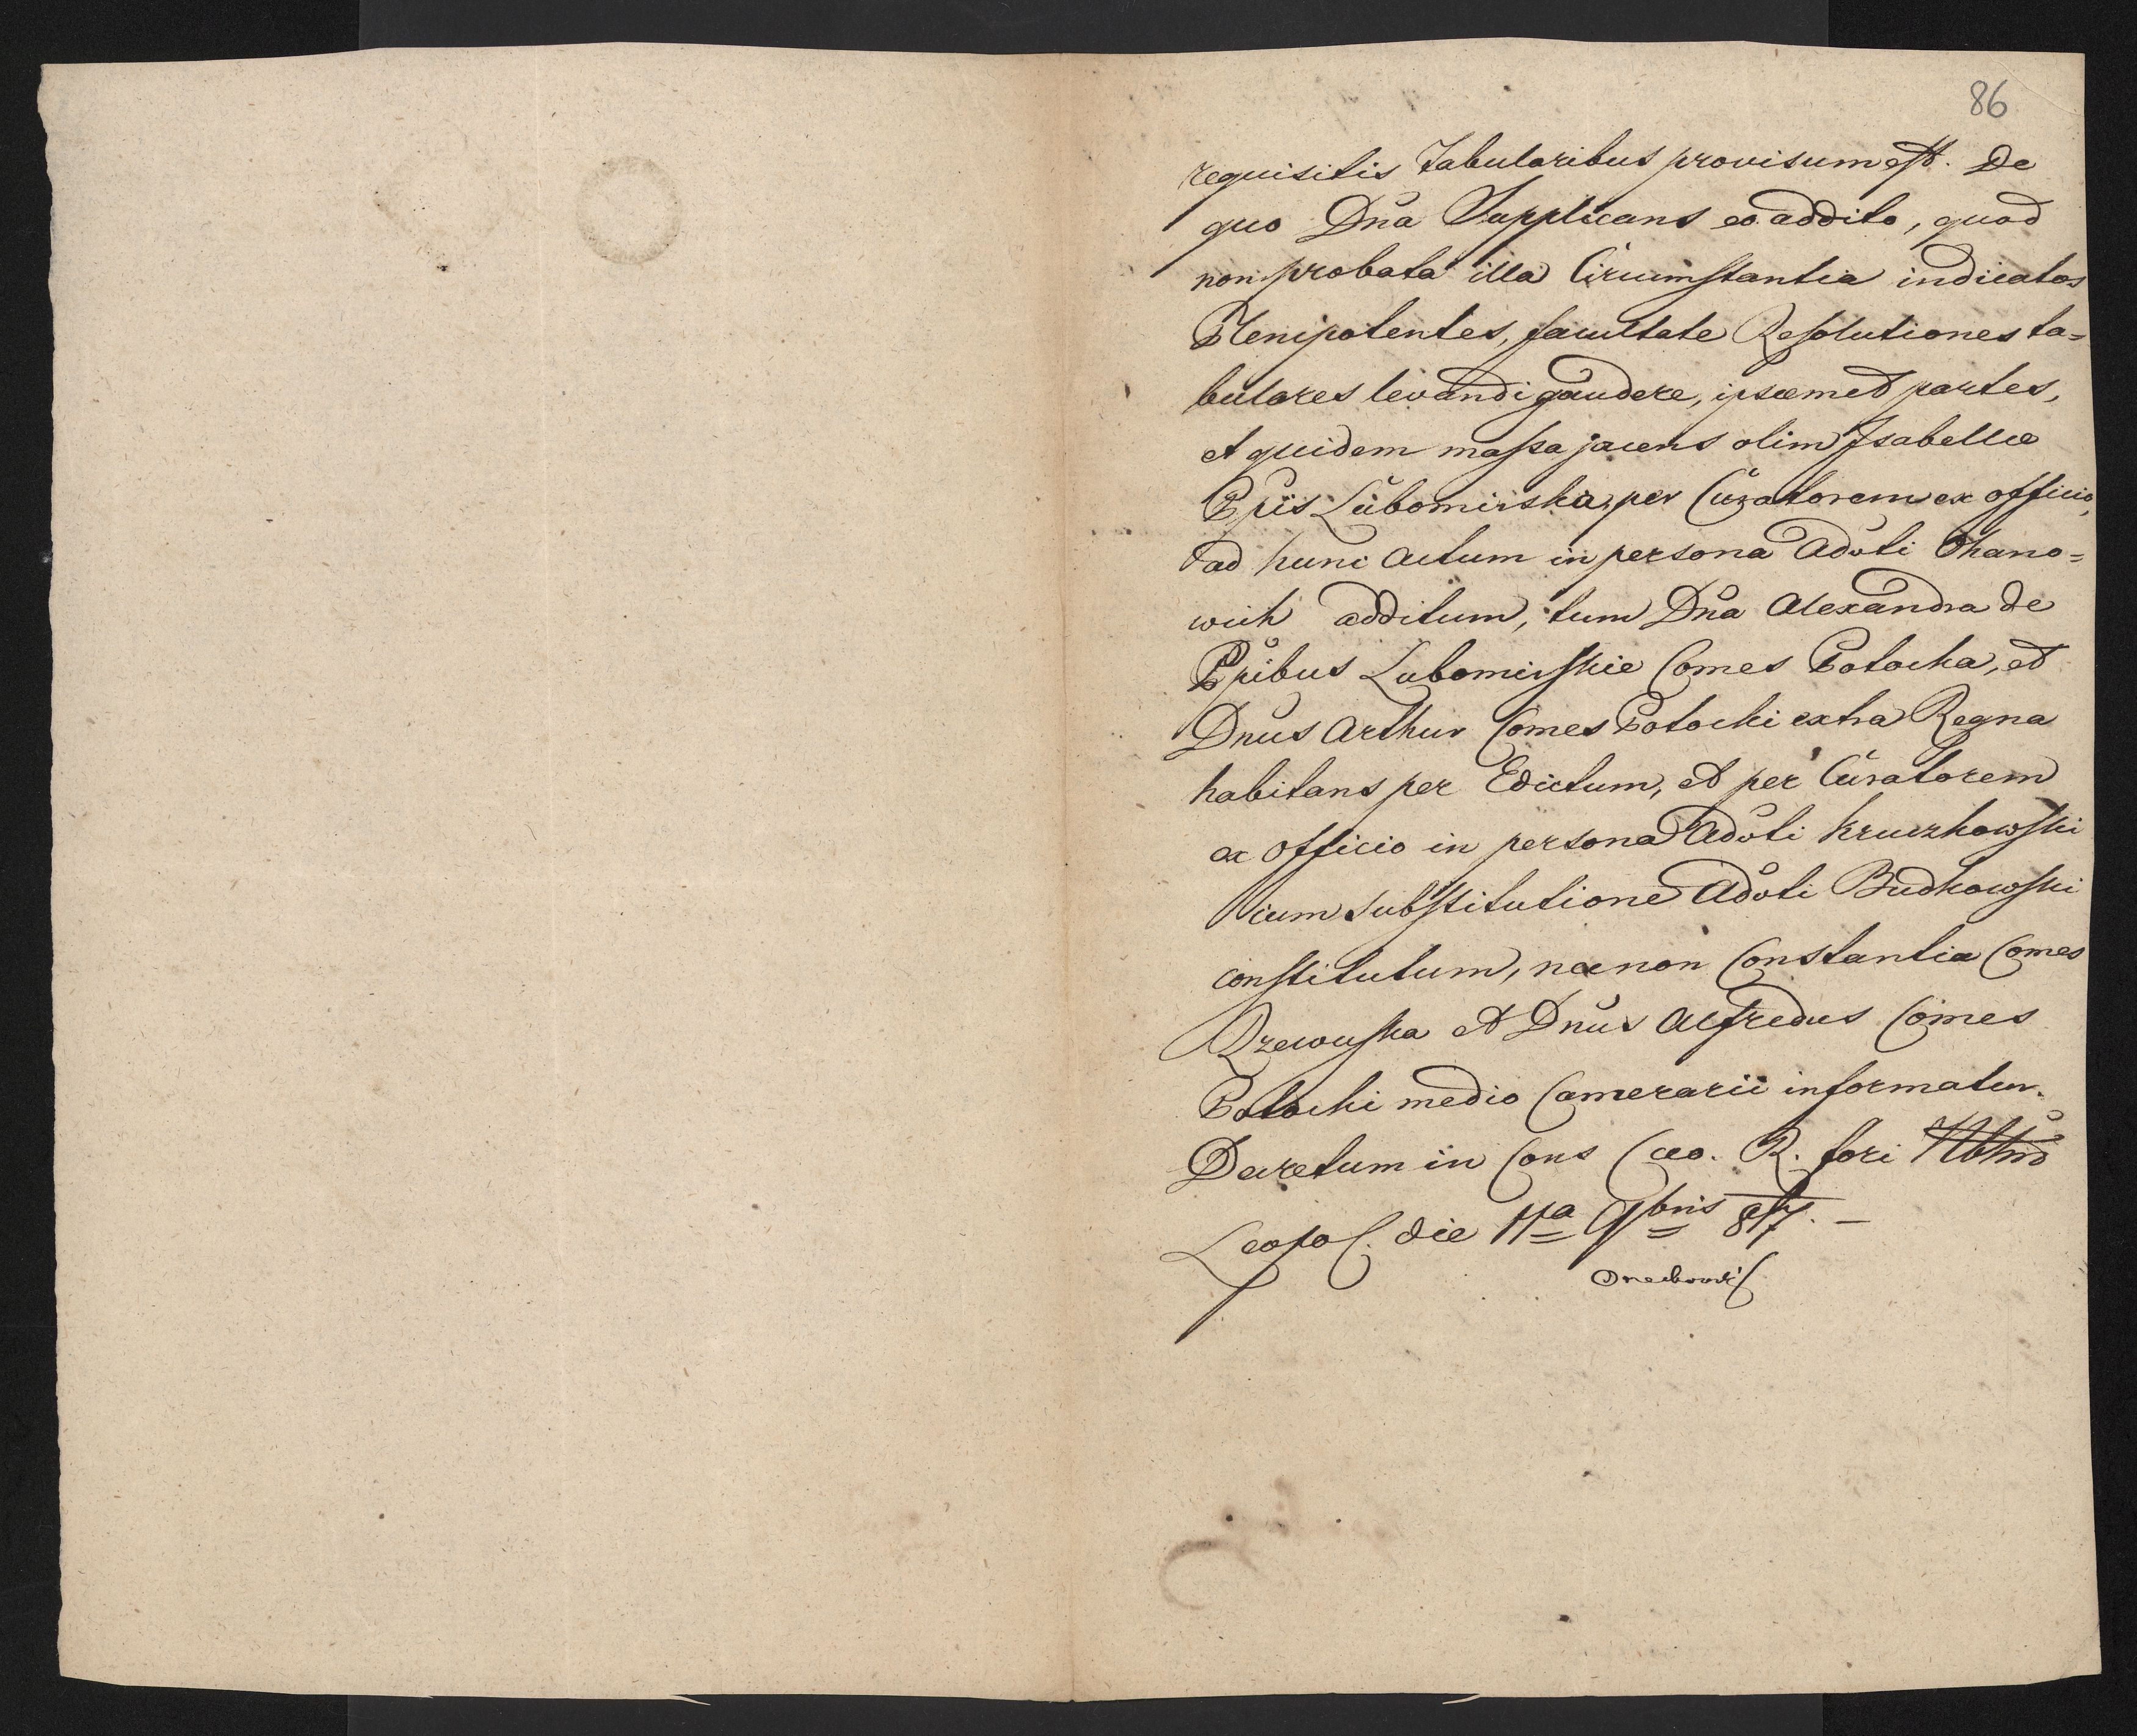 86
requisitis Tabularibus provisum est. De
quo Dna Supplicans eo addito, quod
non probata illa Circumstantia indicatos
Plenipotentes, facultate Resolutiones ta=
bulares levandi gaudere, ipsaemet partes,
et quidem massa jacens olim Isabellae
Ppis Lubomirska, per Curatorem ex officio,
ad hunc Actum in persona Advti Ohano=
wich additum, tum Dna Alexandra de
Ppibus Lubomirskie Comes Potocka, et
Dnus Arthur Comes Potocki extra Regna
habitans per Edictum, et per Curatorem
ex officio in persona Advti Kruczkowski
cum substitutione Advti Budkowski
constitutum, necnon Constantia Comes
Rzewuska et Dnus Alfredus Comes
Potocki medio Camerarii informatur.
Decretum in Cons Caeo. R. fori Nblium
Leopol. die 11a 9bris 817. —